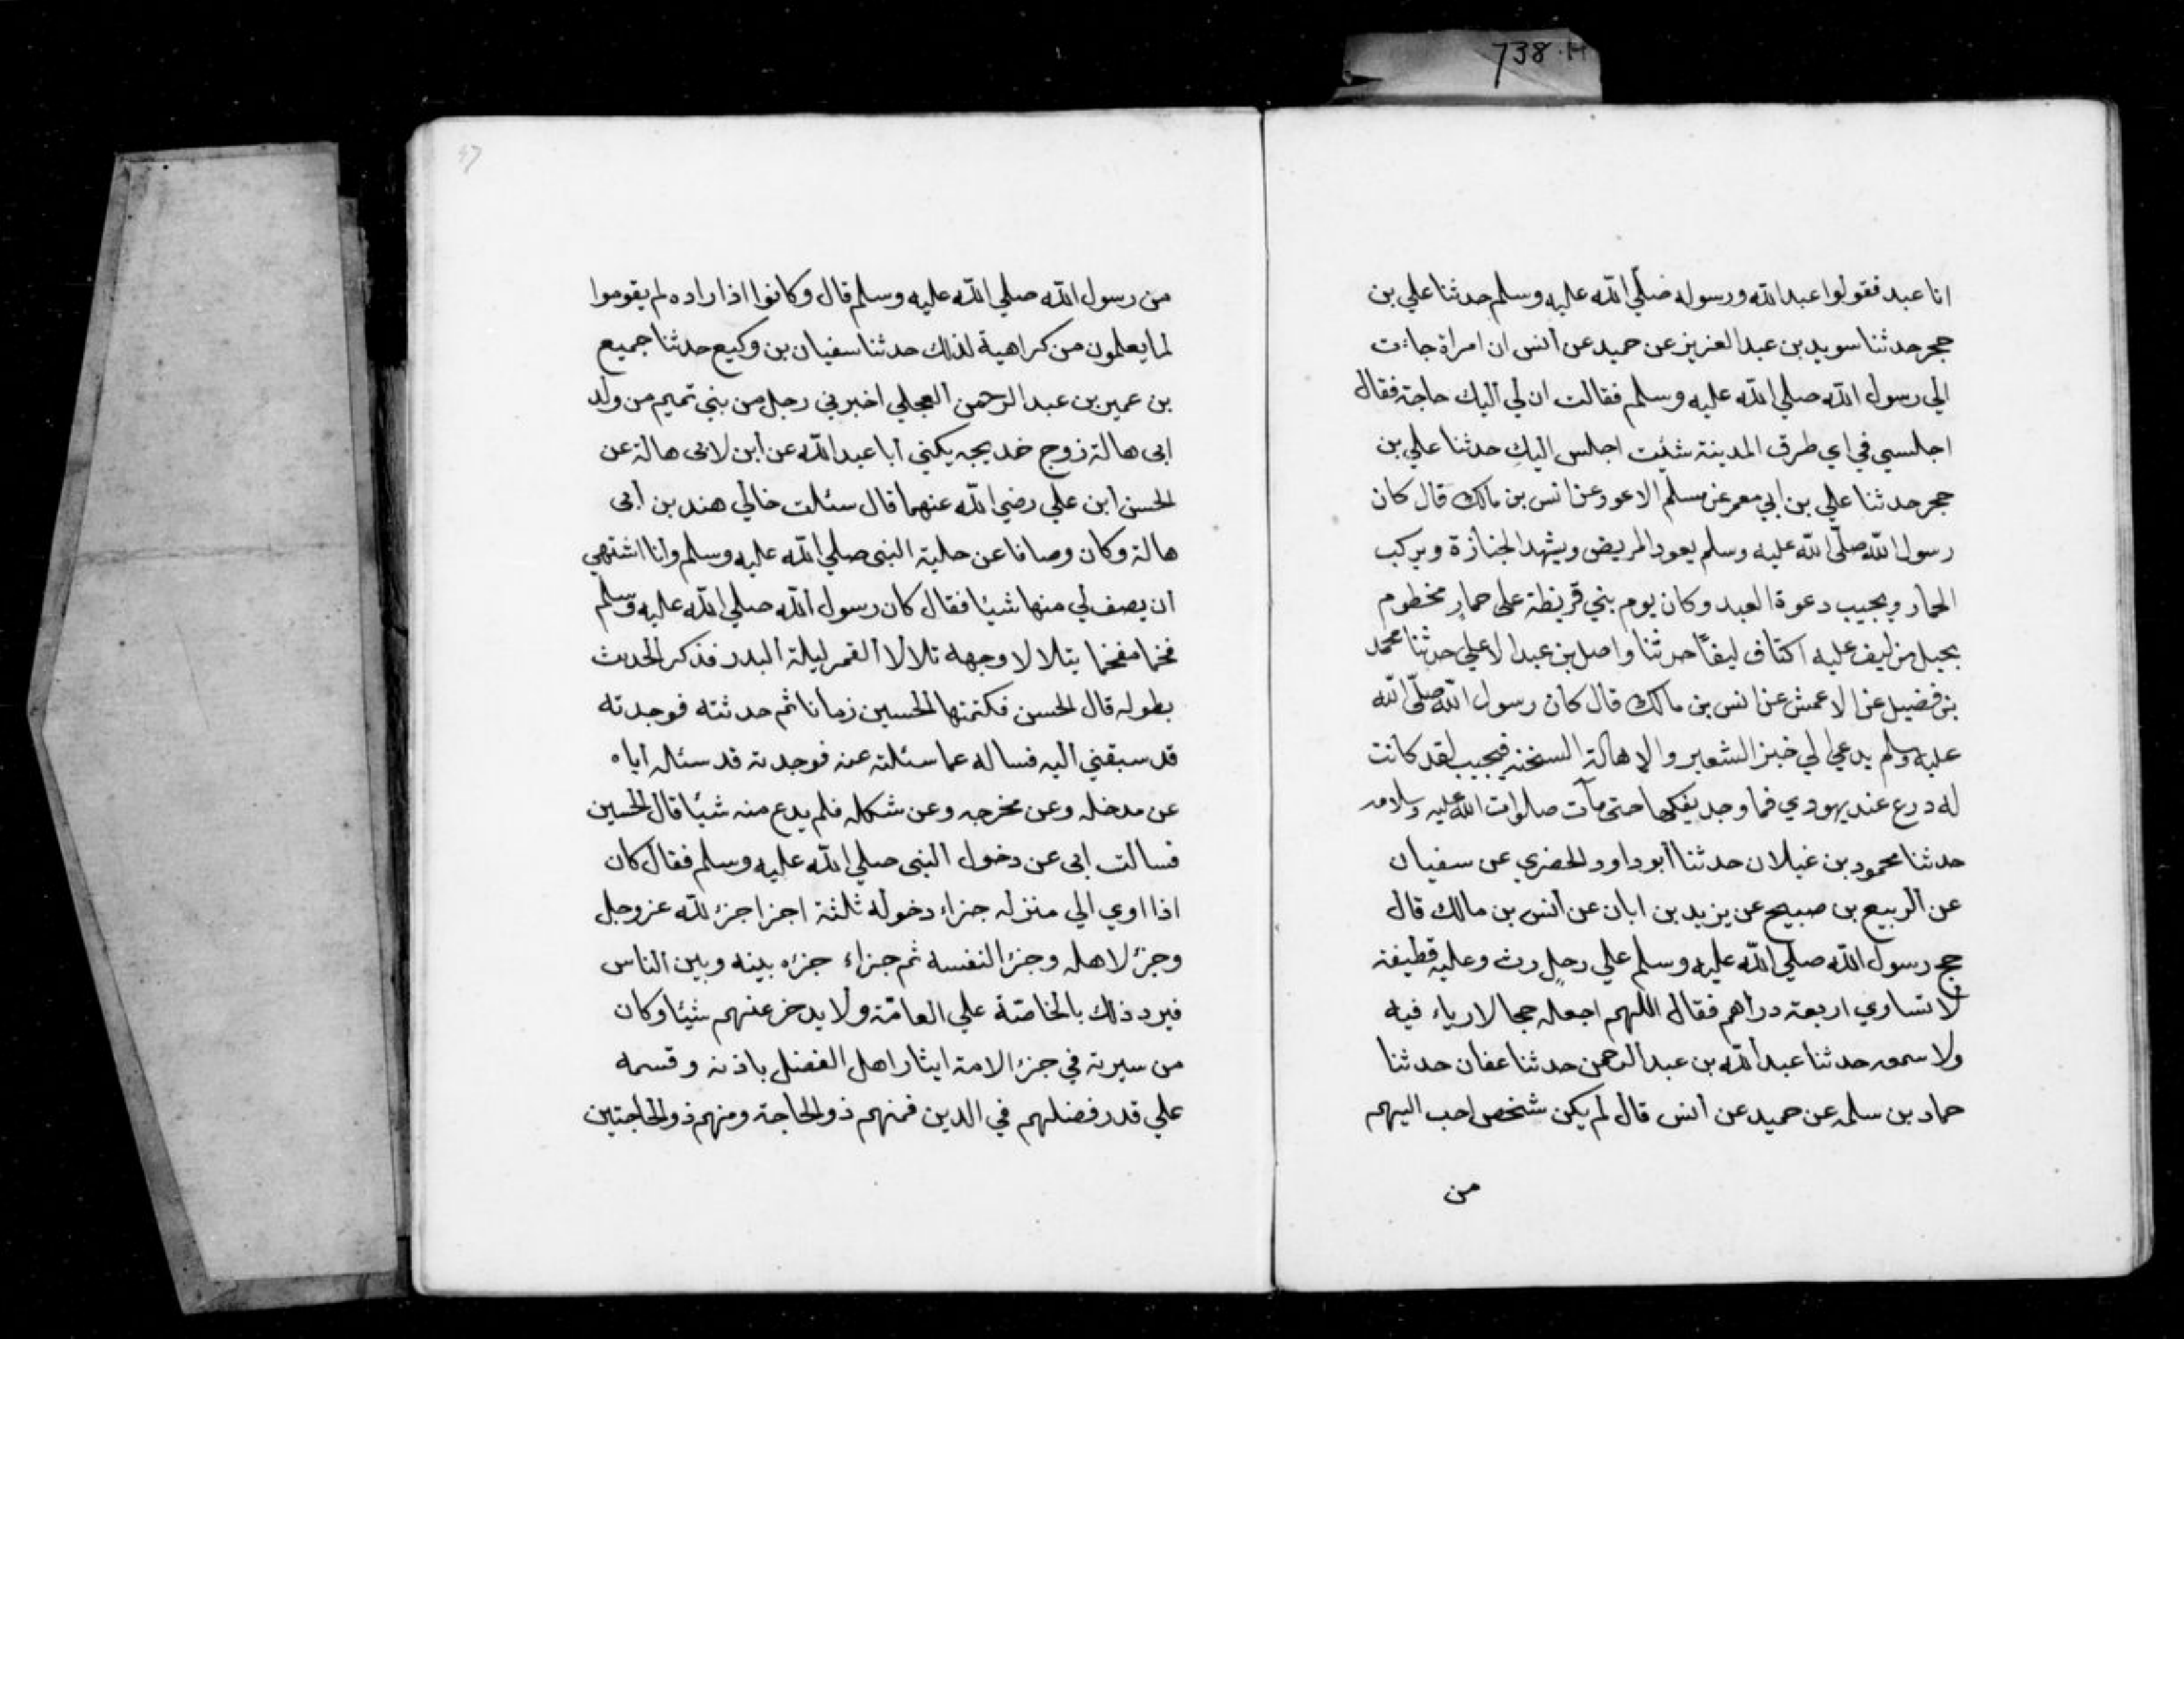 738.H
انا عبد فقولوا عبد الله ورسوله صلي الله عليه وسلم حدثنا علي بن
حجر حدثنا سويد بن عبد العزيز عن حميد عن انس ان امراة جاءت
الي رسول الله صلي الله عليه وسلم فقالت ان لي اليك حاجة فقال
اجلسي في اي طرق المدينة شئت اجلس اليك حدثنا علي بن
حجر حدثنا علي بن ابي معمر عن مسلم الاعور عن انس بن مالك قال كان
رسول الله صلّى الله عليه وسلم يعود المريض ويشهد الجنازة ويركب
الحمار ويجيب دعوة العبد وكان يوم بني قريظة على حمار مخطوم
بحبل من ليف عليه اكتاف ليفًا حدثنا واصل بن عبد الاعلي حدثنا محمد
بن فضيل عن الاعمش عن انس بن مالك قال كان رسول الله صلّى الله
عليه وسلم يدعي الي خبز الشعير والاهالة السنخة فيجيب لقد كانت
له درع عند يهودي فما وجد يفكها حتى مات صلوات الله عليه وسلامه
حدثنا محمود بن غيلان حدثنا أبو داود الحضري عن سفيان
عن الربيع بن صبيح عن يزيد بن ابان عن انس بن مالك قال
حج رسول الله صلي الله عليه وسلم علي رحل رث وعليه قطيفة
لا تساوي اربعة دراهم فقال اللهم اجعله حجا لا رياء فيه
ولا سمعه حدثنا عبد الله بن عبد الرحمن حدثنا عفان حدثنا
حماد بن سلمه عن حميد عن انس قال لم يكن شخص احب اليهم
من
من رسول الله صلي الله عليه وسلم قال وكانوا اذا راده لم يقوموا
لما يعلمون من كراهية لذلك حدثنا سفيان بن وكيع حدثنا جميع
بن عمير بن عبد الرحمن العجلي اخبرني رجل من بني تميم من ولد
ابى هالة زوج خديجه يكني أبا عبد الله عن ابن لابى هالة عن
الحسن ابن علي رضي الله عنهما قال سئلت خالي هند بن أبى
هالة وكان وصافا عن حلية النبى صلي الله عليه وسلم وأنا اشتهي
ان يصف لي منها شيئا فقال كان رسول الله صلي الله عليه وسلم
فخما مفخما يتلالا وجهه تلالا القمر ليلة البدر فذكر الحديث
بطوله قال الحسن فكتمتها الحسين زمانا ثم حدثته فوجدته
قد سبقني اليه فساله عما سئلته عنه فوجدته قد سئله اياه
عن مدخله وعن مخرجه وعن شكله فلم يدع منه شيئا قال الحسين
فسالت ابى عن دخول النبى صلي الله عليه وسلم فقال كان
اذا اوي الي منزله جزاء دخوله ثلثة اجزا جزء لله عزوجل
وجزء لاهله وجزء النفسه ثم جزاء جزءه بينه وبين الناس
فيرد ذلك بالخاصّة علي العامّة ولا يدخر عنهم شيئا وكان
من سيرته في جزء الامة ايثار اهل الفضل باذنه وقسمه
علي قدر فضلهم في الدين فمنهم ذو الحاجة ومنهم ذو الحاجتين